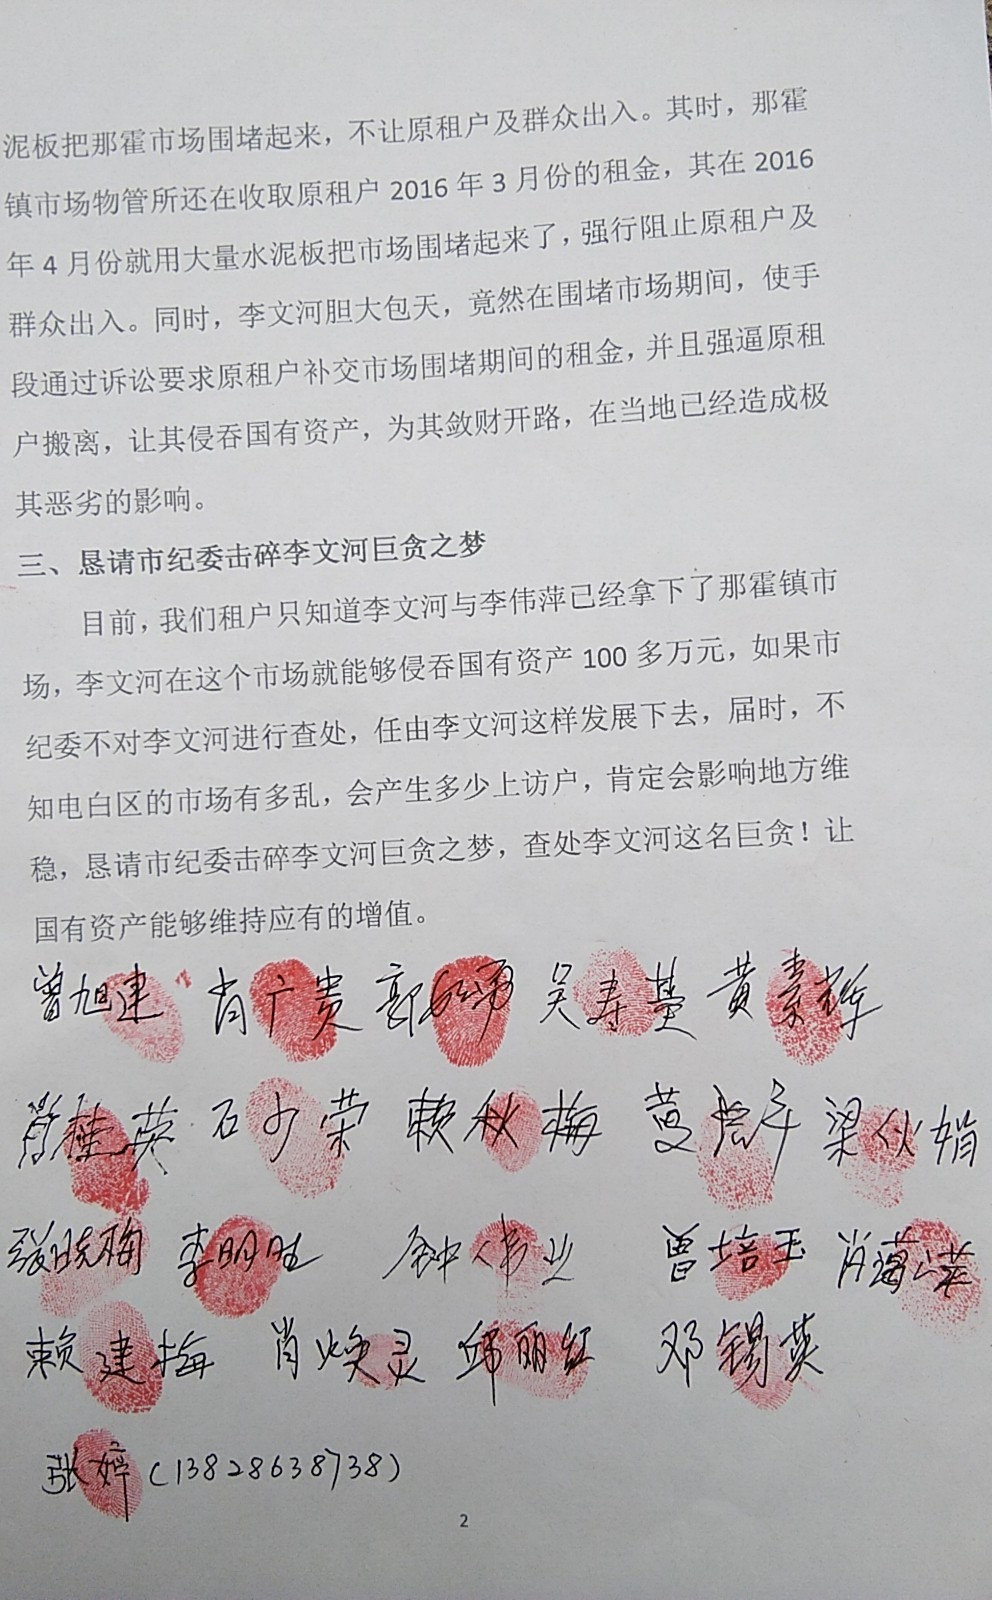 泥板把那霍市场围堵起来，不让原租户及群众出入。其时，那霍
镇市场物管所还在收取原租户 2016 年 3 月份的租金，其在 2016
年 4 月份就用大量水泥板把市场围堵起来了，强行阻止原租户及
群众出入。同时，李文河胆大包天，竟然在围堵市场期间，使手
段通过诉讼要求原租户补交市场围堵期间的租金，并且强逼原租
户搬离，让其侵吞国有资产，为其敛财开路，在当地已经造成极
其恶劣的影响。
三、恳请市纪委击碎李文河巨贪之梦
目前，我们租户只知道李文河与李伟萍已经拿下了那霍镇市
场，李文河在这个市场就能够侵吞国有资产 100 多万元，如果市
纪委不对李文河进行查处，任由李文河这样发展下去，届时，不
知电白区的市场有多乱，会产生多少上访户，肯定会影响地方维
稳，恳请市纪委击碎李文河巨贪之梦，查处李文河这名巨贪！让
国有资产能够维持应有的增值。
曾旭建 肖广贵 吴寿基 黄素辉
肖桂英 石少荣 赖秋梅 梁伙娟
张晓梅 李明旺 钟伟业 曾培玉
赖建梅 肖焕灵 邱丽红 邓锡英
张婷（13828638738）
2